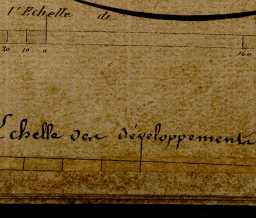 l'Echelle de
20 10 0 100
Echelle des développements